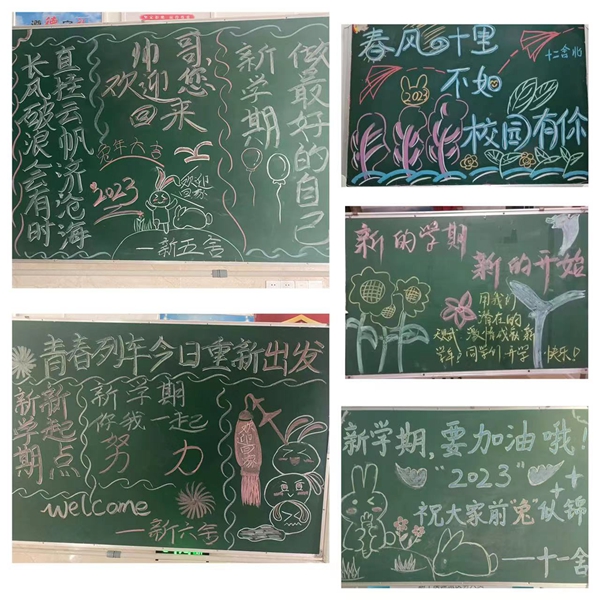 长风破浪会有时
直挂云帆济沧海
帅哥
欢迎您
回来
兔年大吉
2023
欢迎
回家
一新五舍
新学期
做最好的自己
春风十里
十二舍北
不如
2023
校园有你
新的学期
新的开始
用我们
潜在的
激情成就新
学年!同学们开学快乐
青春列车今日重新出发
新起点
新学期
新学期
你我一起
努力
欢迎回家
welcome
一新六舍
新学期,要加油哦!
"2023"
祝大家前"兔"似锦
一十一舍